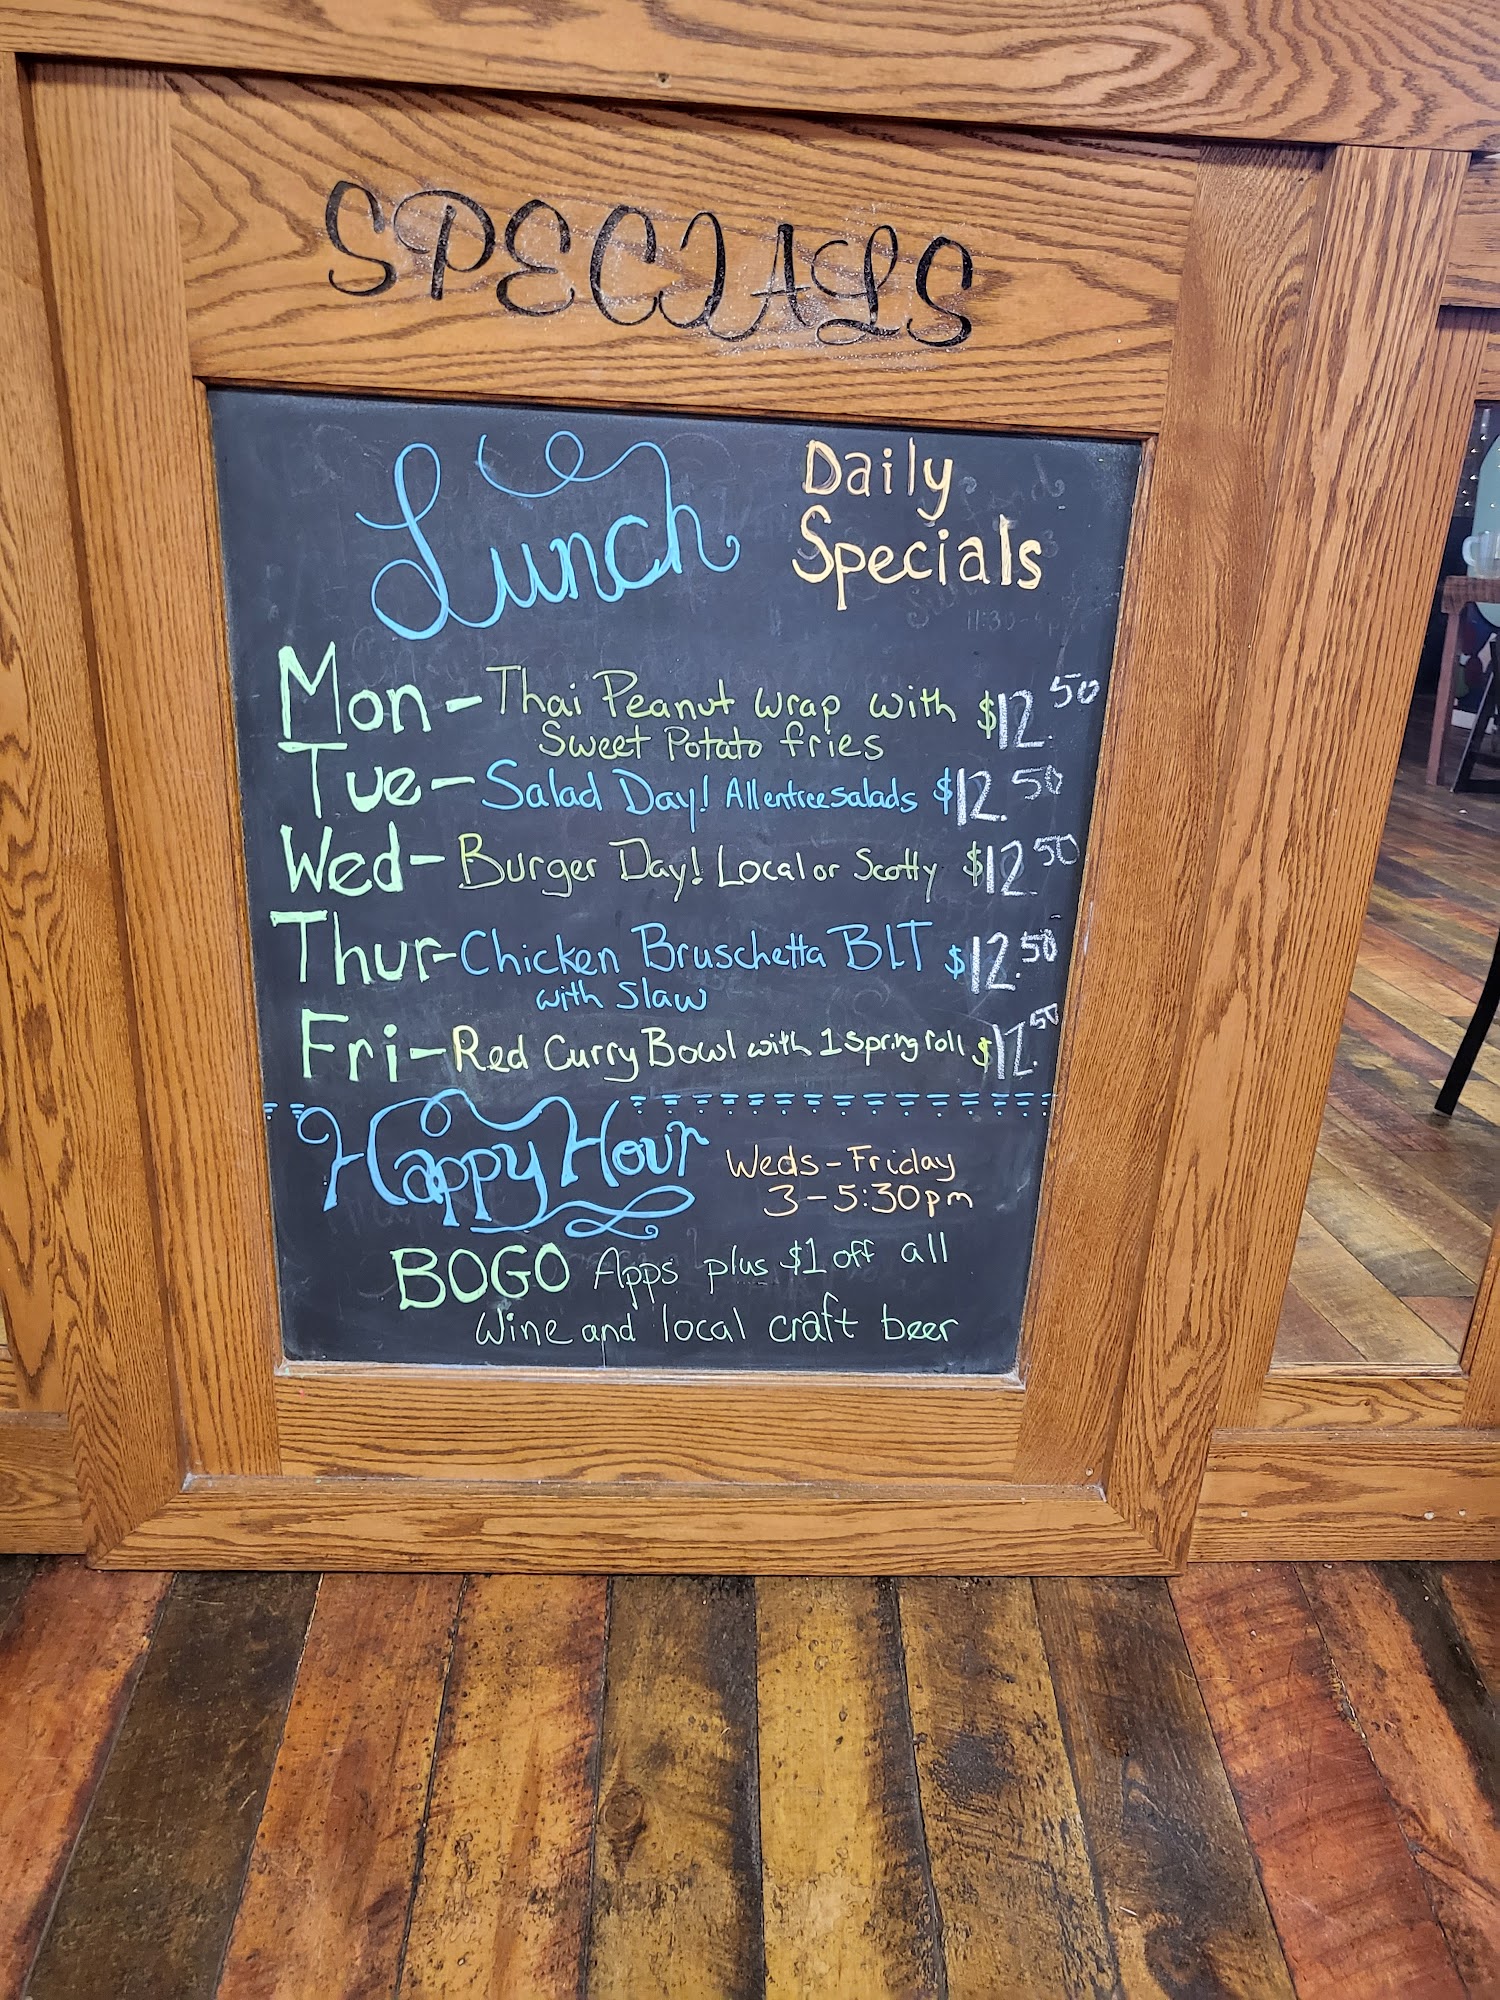 SPECIALS
Lunch Daily
Specials
Mon - Thai Peanut wrap with $12.50
Sweet Potato fries
Tue - Salad Day! All entree salads $12.50
Wed - Burger Day! Local or Scotty $12.50
Thur - Chicken Bruschetta BLT $12.50
with Slaw
Fri - Red Curry Bowl with 1 spring roll $12.50
Happy Hour Weds - Friday
3 - 5:30pm
BOGO Apps plus $1 off all
Wine and local craft beer